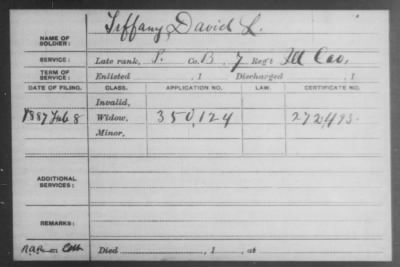 NAME OF SOLDIER: Tiffany, David L.
SERVICE: Late rank, P. Co. B, 7 Reg't Ill Cav.
TERM OF SERVICE: Enlisted , 1 Discharged , 1
DATE OF FILING. CLASS. APPLICATION NO. LAW. CERTIFICATE NO.
Invalid,
1887 Feb 8 Widow, 350,124 272,493
Minor,
ADDITIONAL SERVICES:
REMARKS:
Died , 1 , at